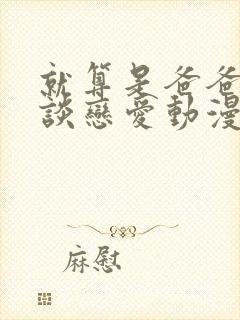 就算是爸爸
談戀愛動漫
麻慰